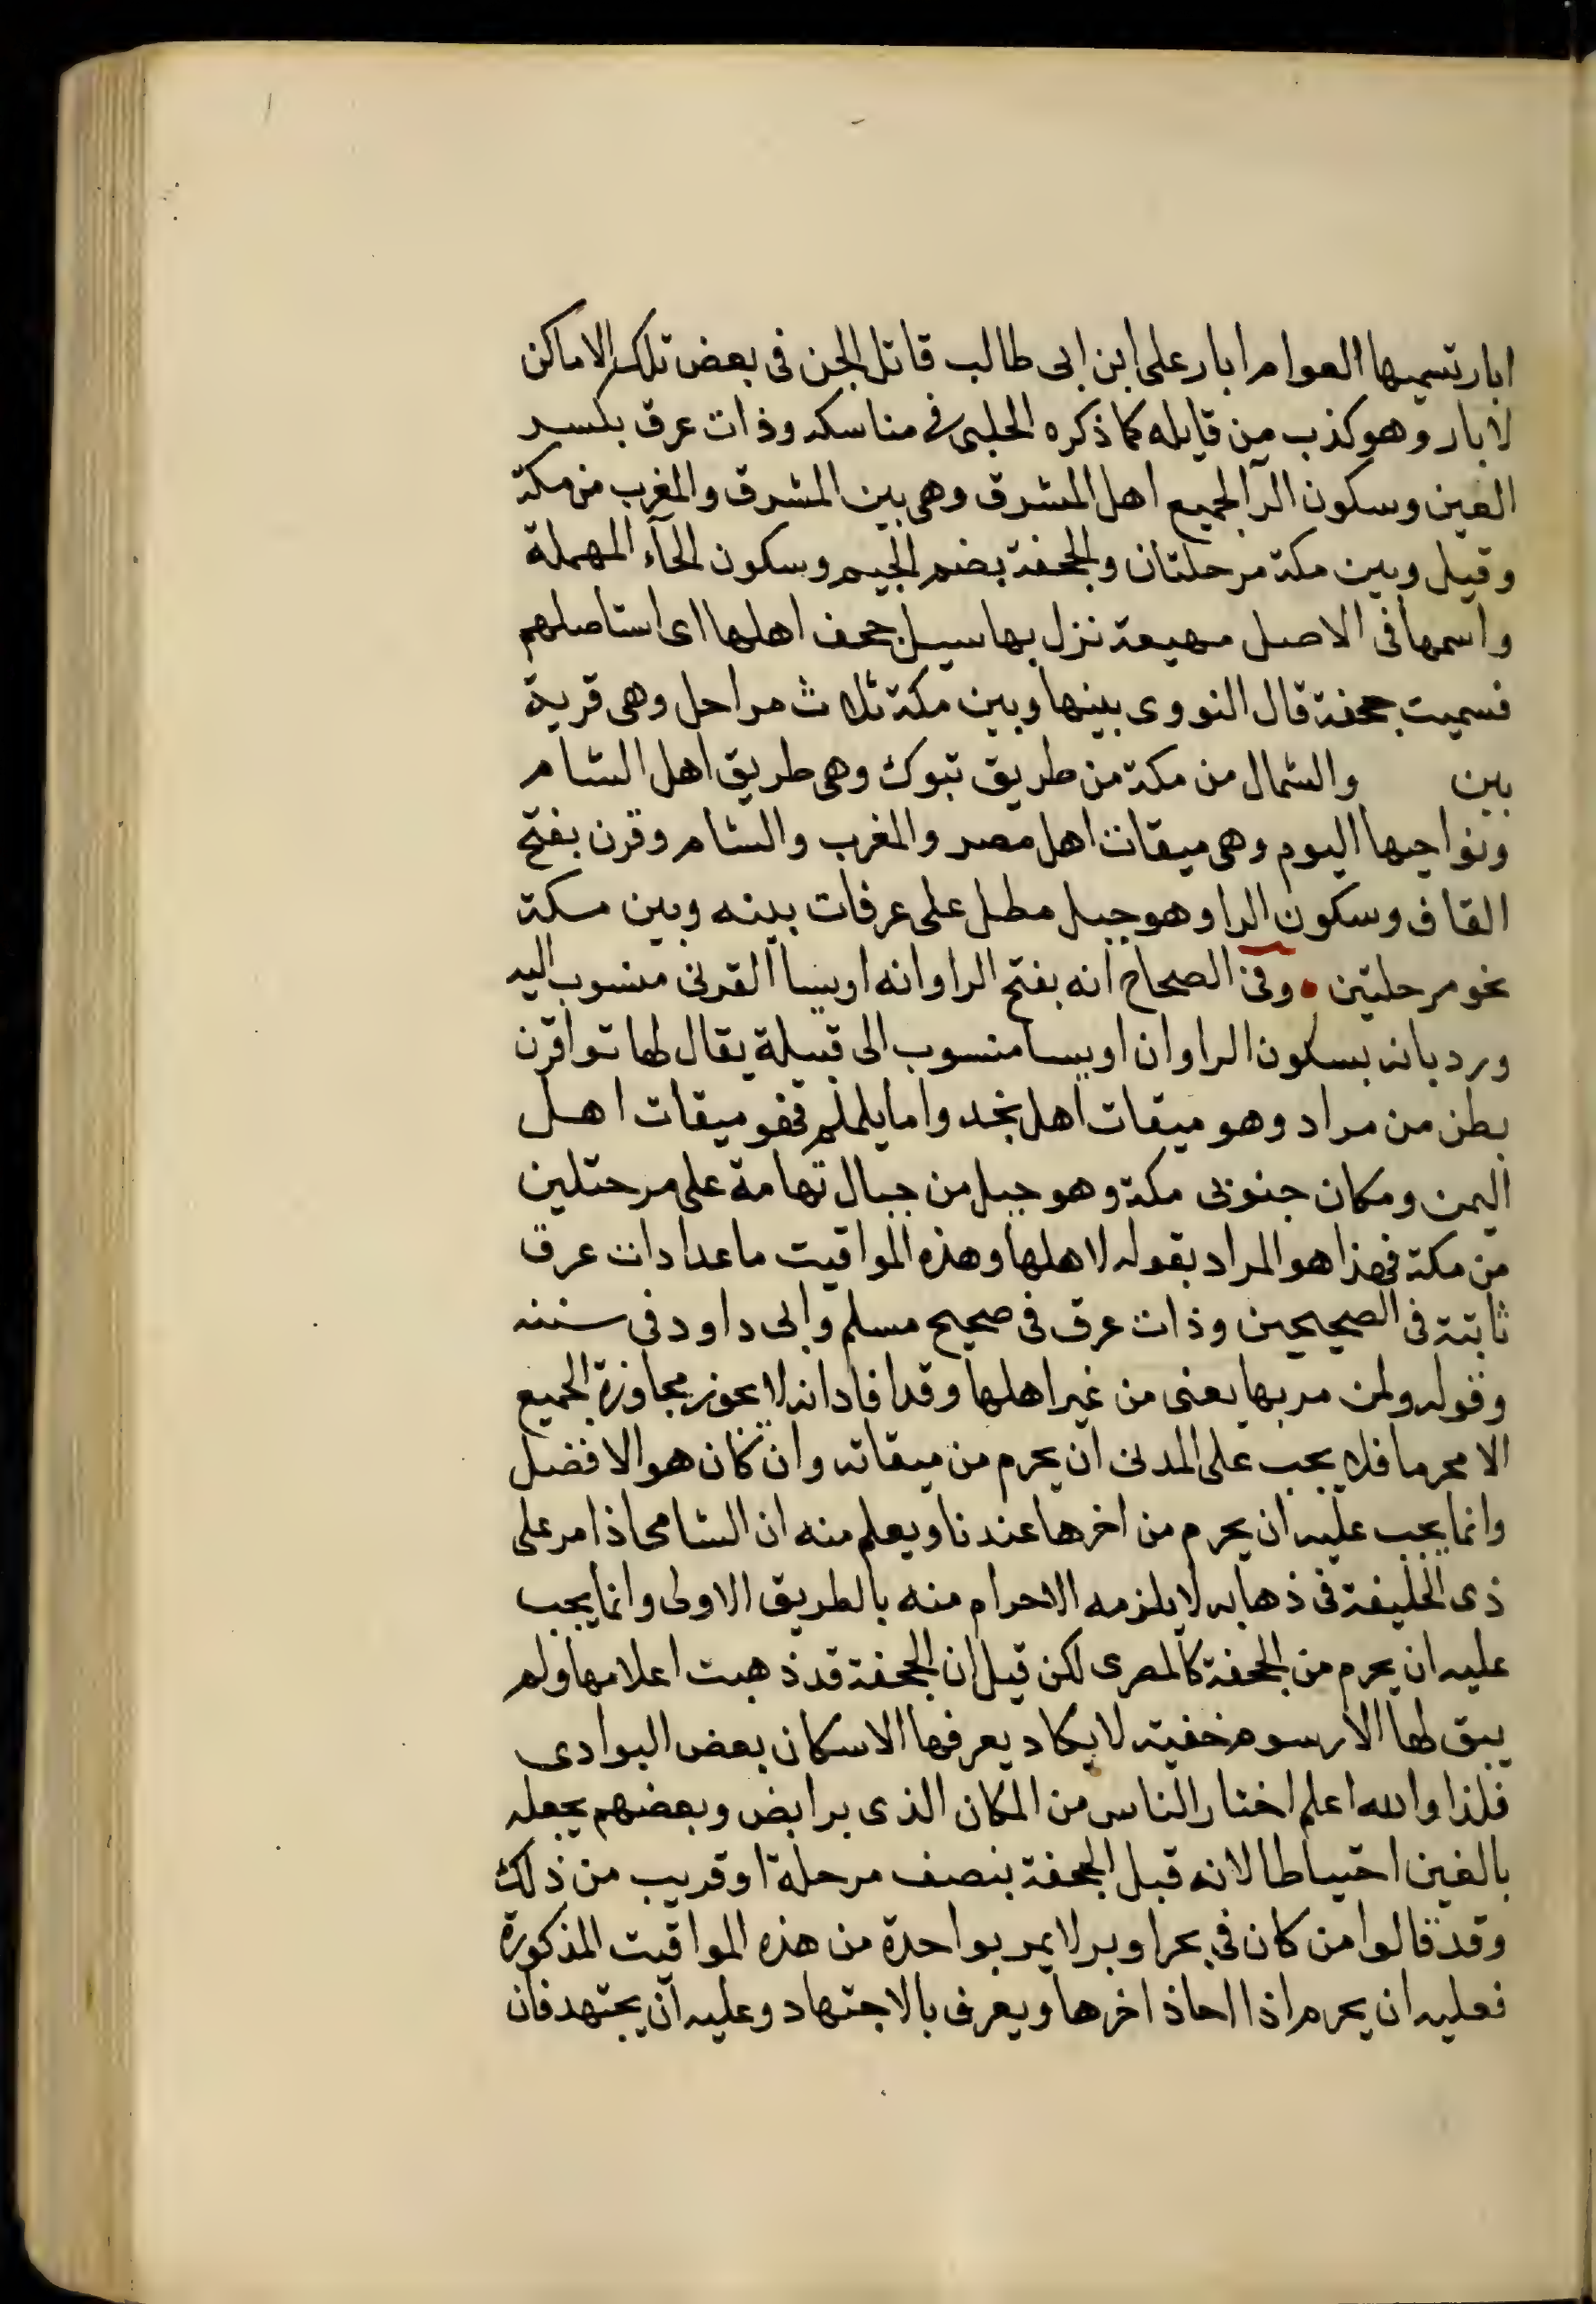 ابار تسميها العوام ابار على ابن ابى طالب قاتل الجن فى بعض تلك الاماكن
لابار وهو كذب من قايله كما ذكره الحلبى فى مناسكه وذات عرق بكسر
العين وسكون الرآ لجميع اهل المشرق وهى بين المشرق والمغرب من مكة
وقيل وبين مكة مرحلتان والجحفة بضم الجيم وسكون الحآء المهملة
واسمها فى الاصل مهيعة نزل بها سيل جحف اهلها اى استاصلهم
فسميت جحفة قال النووى بينها وبين مكة ثلاث مراحل وهى قرية
بين والشمال من مكة من طريق تبوك وهى طريق اهل الشام
ونواحيها اليوم وهى ميقات اهل مصر والمغرب والشام وقرن بفتح
القاف وسكون الرا وهو جبل مطل على عرفات بينه وبين مكة
نحو مرحلتين • وفى الصحاح انه بفتح الرا وانه اويسا القرنى منسوب اليه
ورد بانه بسكون الرا وان اويسا منسوب الى قبيلة يقال لها تواقرن
بطن من مراد وهو ميقات اهل نجد واما يلملم فهو ميقات اهل
اليمن ومكان جنوبى مكة وهو جبل من جبال تهامة على مرحتلين
من مكة فهذا هو المراد بقوله لاهلها وهذه المواقيت ما عدا دات عرق
ثابتة فى الصحيحين وذات عرق فى صحيح مسلم وابى داود فى سننه
وقوله ولمن مر بها يعنى من غير اهلها وقد افاد انه لا يجوز مجاوزة الجميع
الا محرما فلا يجب على المدنى ان يحرم من ميقاته وان كان هو الافضل
وانما يجب عليه ان يحرم من اخرها عندنا ويعلم منه ان الشامى اذا مر على
ذى الخليفة فى ذهابه لا يلزمه الاحرام منه بالطريق الاولى وانما يجب
عليه ان يحرم من الجحفة كالمصرى لكن قيل ان الجحفة قد ذهبت اعلامها ولم
يبق لها الا رسوم خفية لا يكاد يعرفها الا سكان بعض البوادى
فلذا والله اعلم اختار الناس من المكان الذى برابض وبعضهم يجعله
بالغين احتياطا لانه قبل الجحفة بنصف مرحلة او قريب من ذلك
وقد قالوا من كان فى بحر او بر لا يمر بواحدة من هذه المواقيت المذكورة
فعليه ان يحرم اذا احاذ اخرها ويعرف بالاجتهاد وعليه ان يجتهد فان